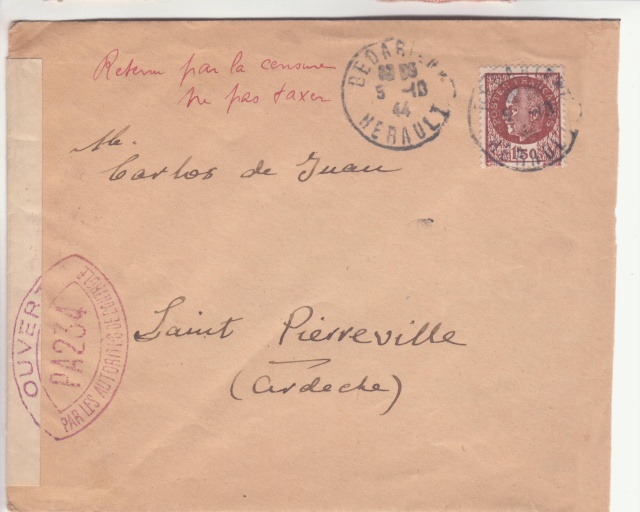 Retenu par la censure
ne pas taxer
BEDARIEUX
5 -10
44
HERAULT
POSTES FRANÇAISES
1F50
Mr.
Carlos de Juan
Saint Pierreville
(Ardeche)
OUVERT
PA234
PAR LES AUTORITÉS DE CONTROLE